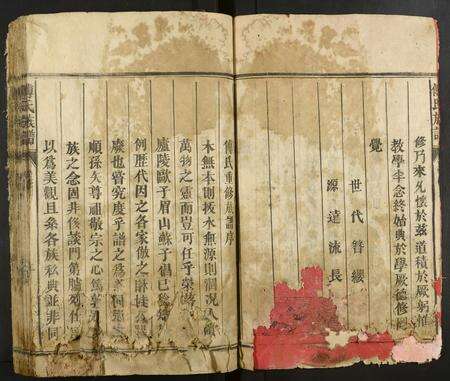 傅氏族譜
修乃來凡懷於茲道積於厥躬惟
教學半念終始典於學厥德修罔
覺
世代簪纓
源遠流長
傅氏重修族譜序
木無本則拔水無源則涸況人爲
萬物之靈而豈可任乎
廬陵歐子眉山蘇子倡已
例歷代因之各家倣之
廢也嘗究度乎譜之爲
順孫矣尊祖敬宗之心篤
族之念固非後談門第臚列
以爲美觀且粂各族私典並非同
傅氏族譜